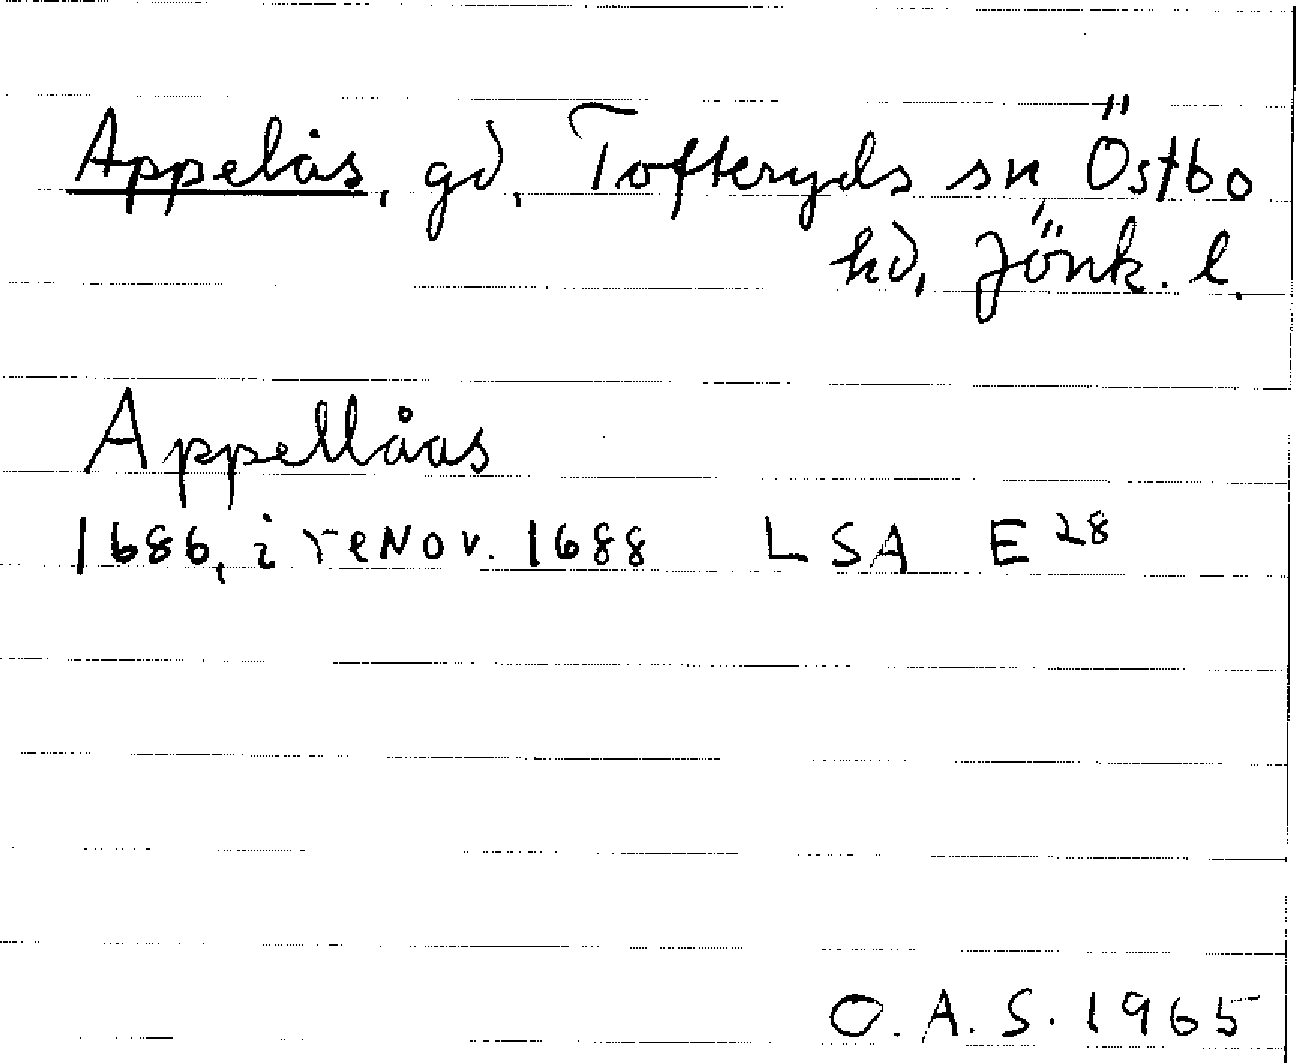 Appelås, gd, Tofteryds sn, Östbo
hd, Jönk. l.
Appellåas
1686, i renov. 1688 LSA E 28
O. A. S. 1965